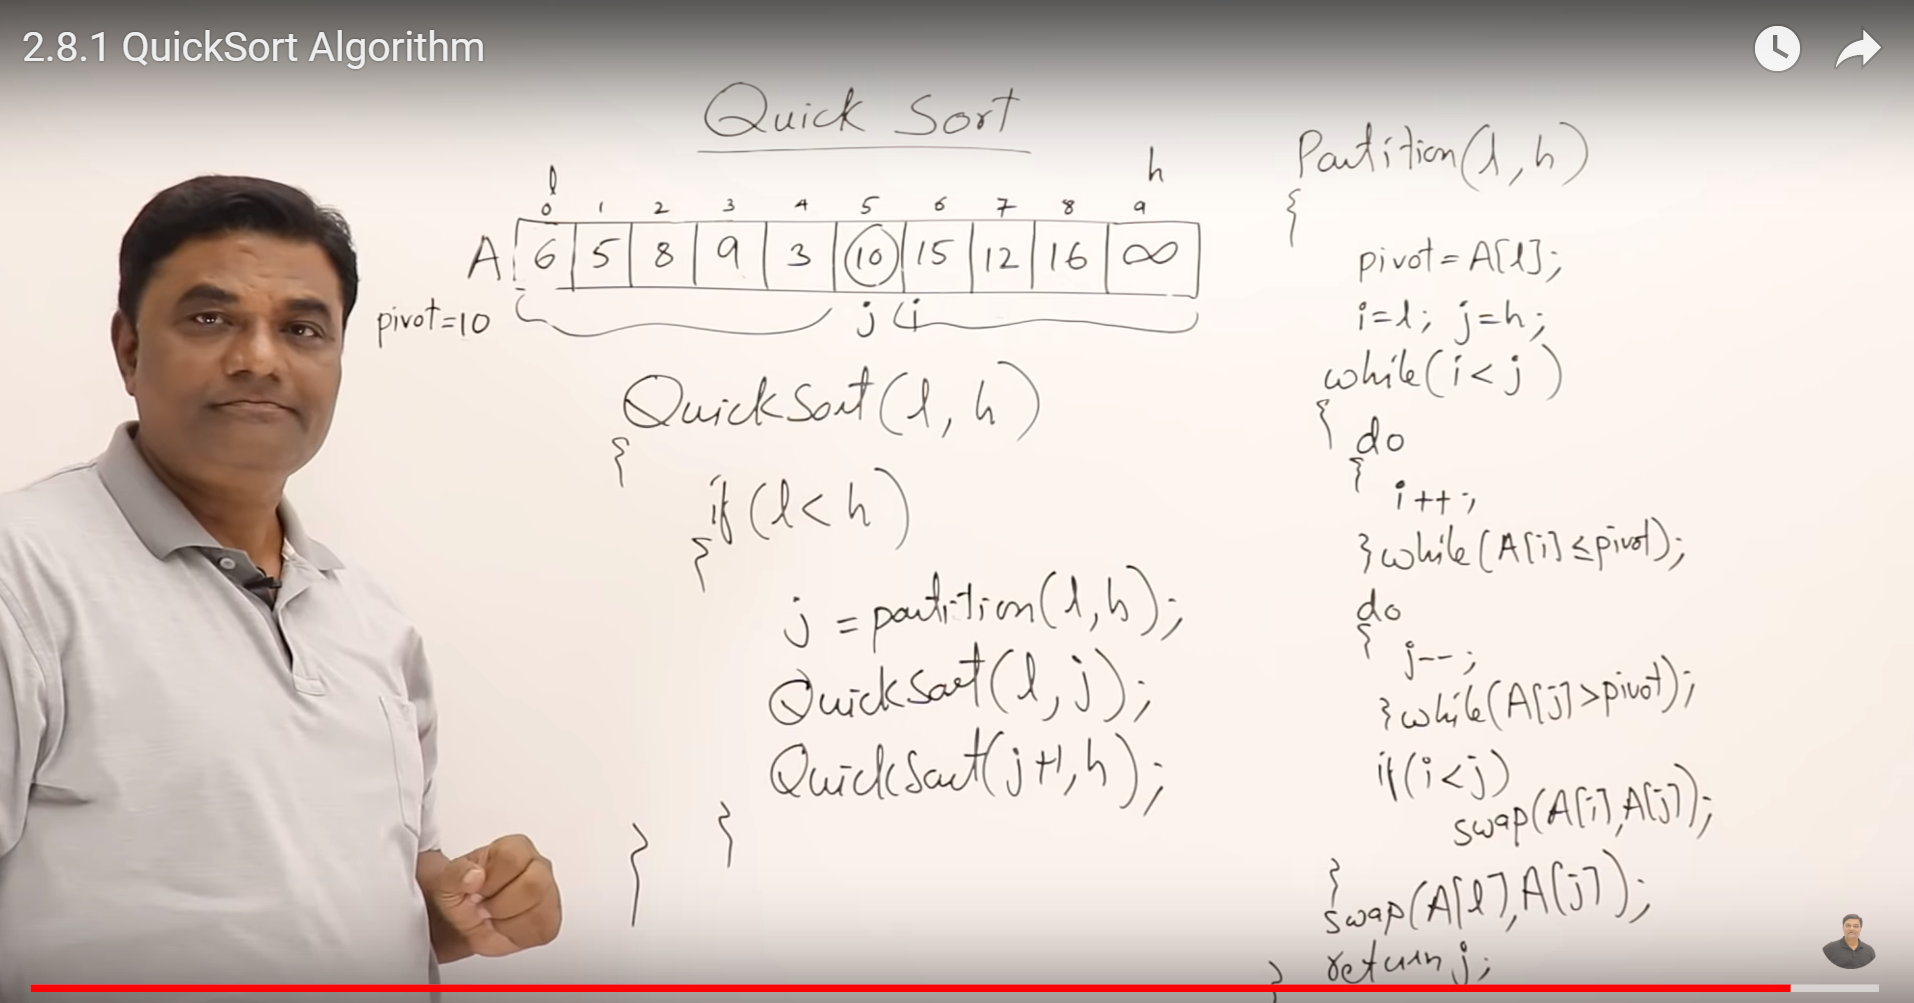 2.8.1 QuickSort Algorithm
Quick Sort
l h
0 1 2 3 4 5 6 7 8 9
A 6 5 8 9 3 10 15 12 16 ∞
pivot=10
j i
QuickSort(l, h)
{
if(l< h)
{
j = partition(l, h);
QuickSort(l, j);
QuickSort(j+1, h);
}
}
Partition(l, h)
{
pivot = A[l];
i=l; j=h;
while(i< j)
{ do
{
i++;
}while(A[i]≤pivot);
do
{
j--;
}while(A[j]>pivot);
if(i<j)
swap(A[i],A[j]);
}
swap(A[l],A[j]);
return j;
}